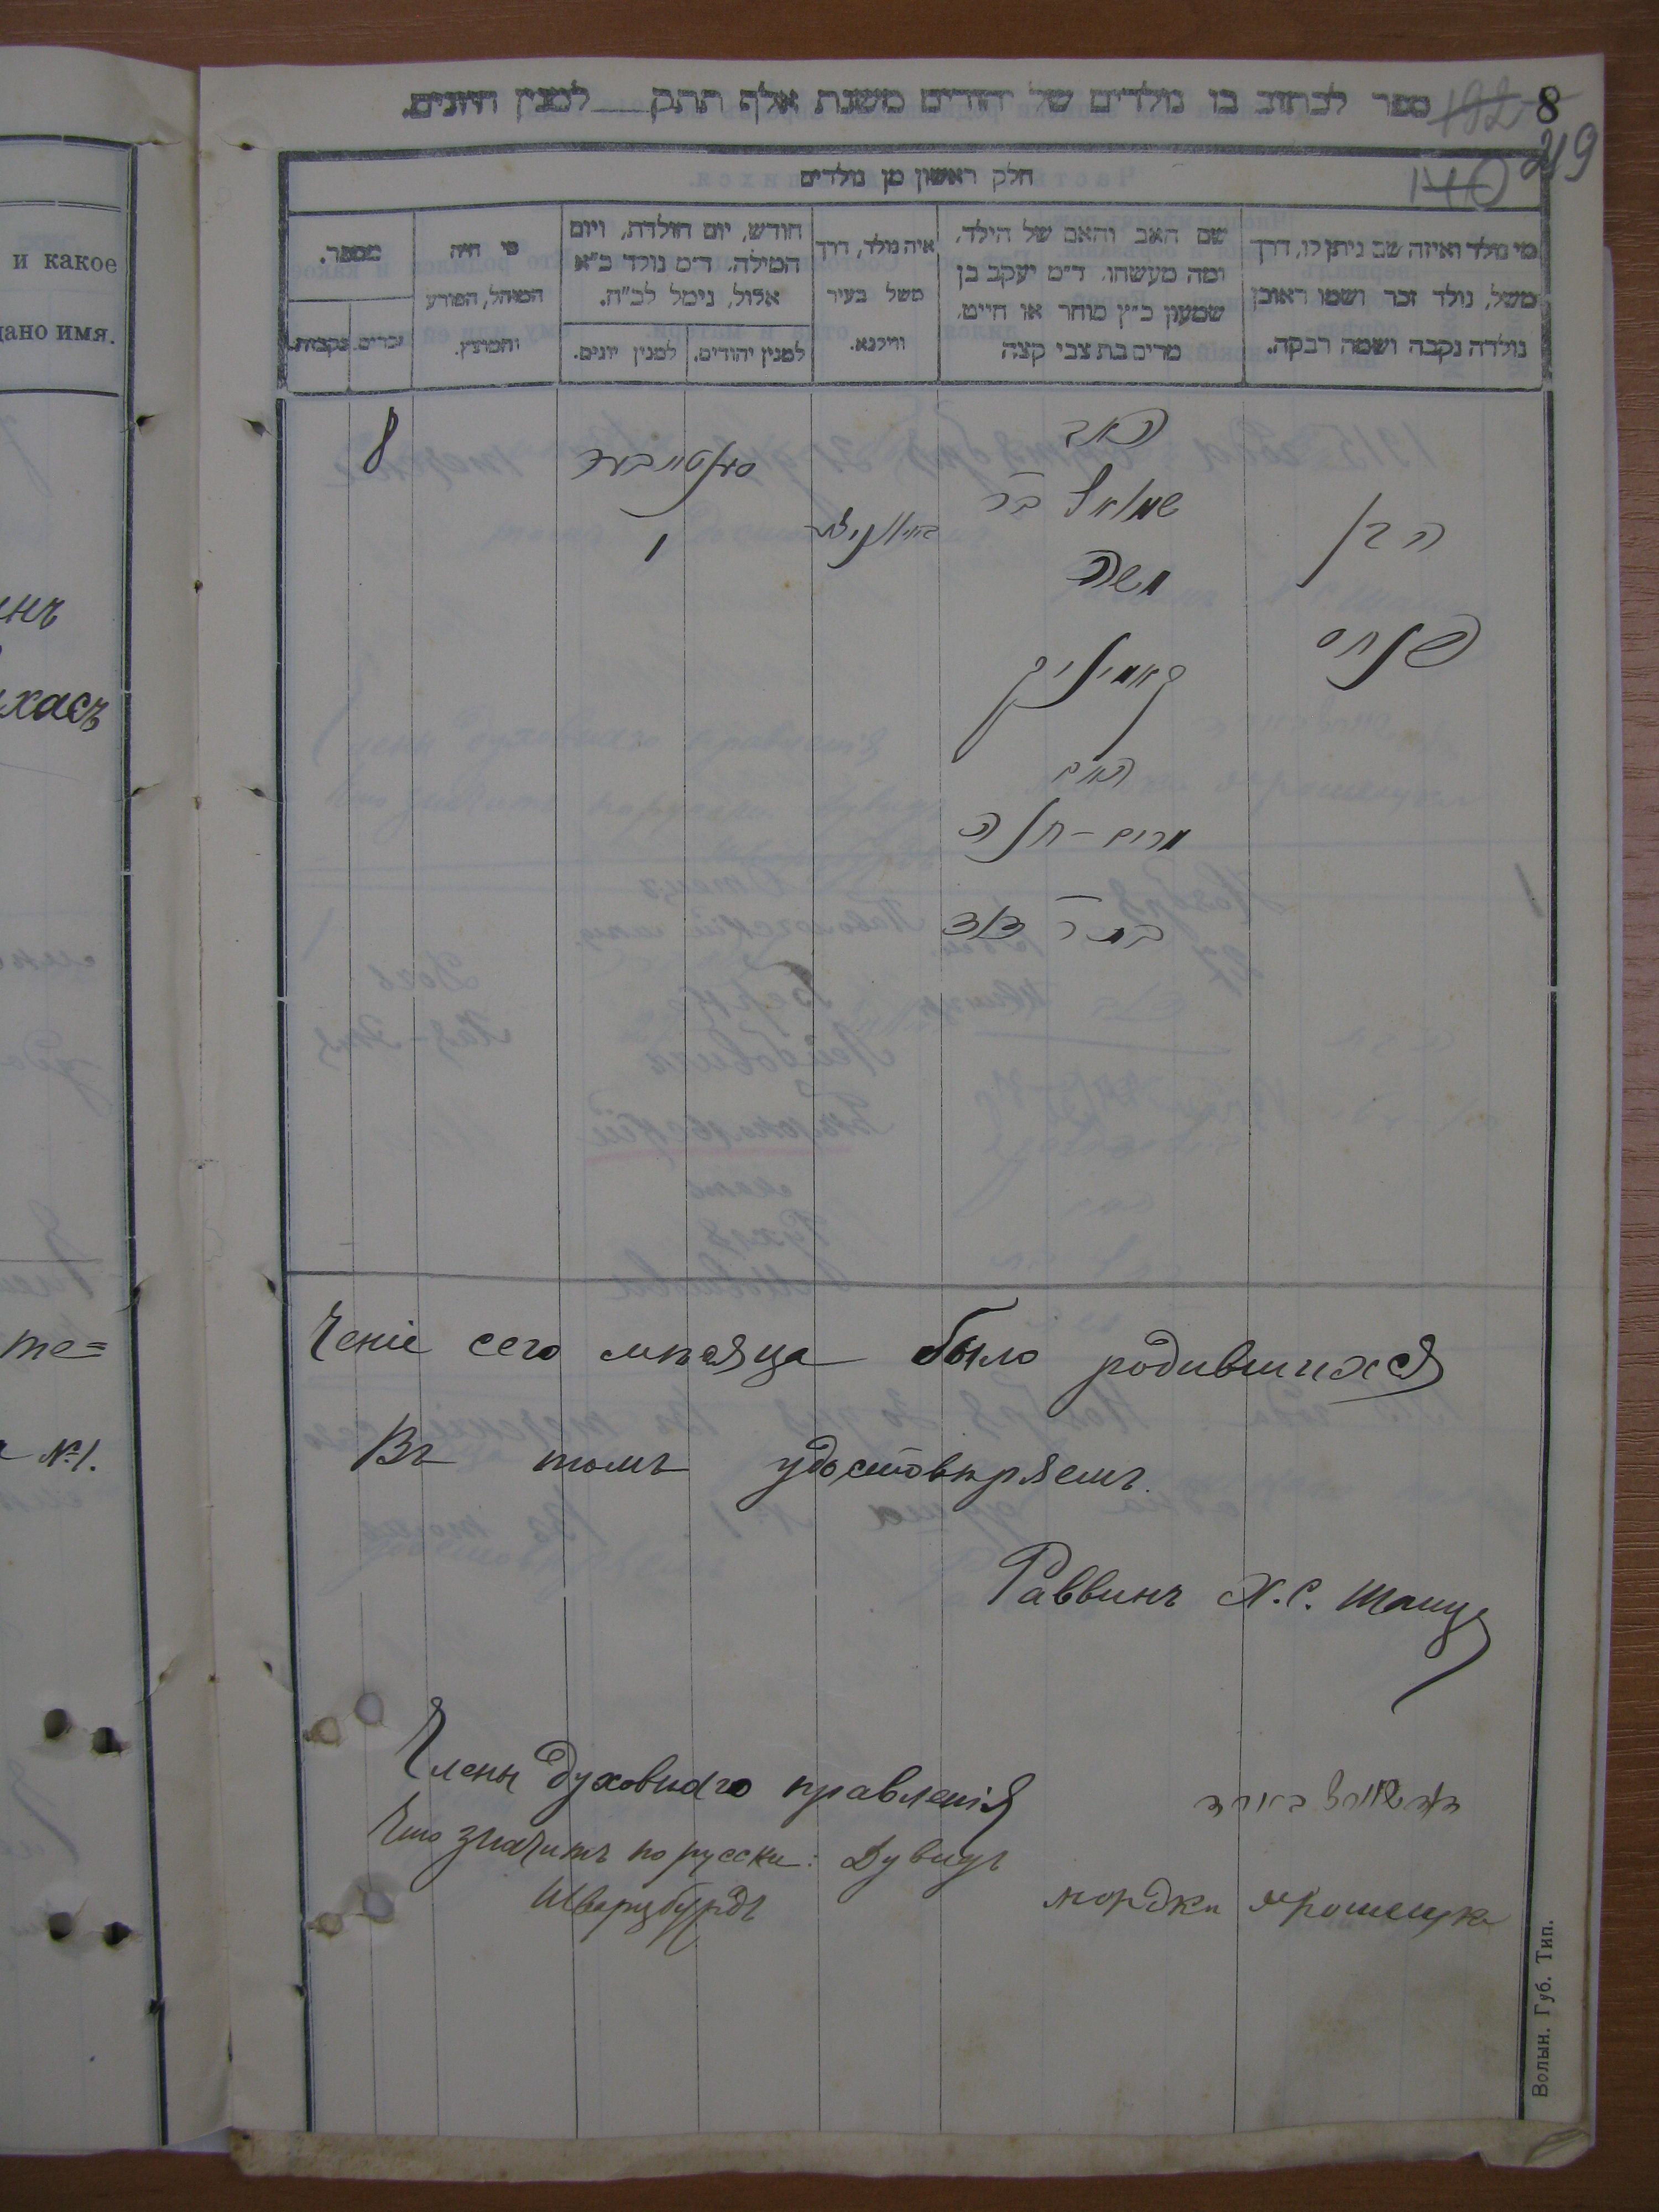 ספר לכתוב בו נולדים של יהודים משנת אלף תתק למנין היונים.
192
8
140
219
חלק ראשון מן נולדים
מי נולד ואיזה שם ניתן לו, דרך
משל, נולד זכר ושמו ראובן
נולדה נקבה ושמה רבקה.
שם האב והאם של הילד,
ומה מעשהו. ד״מ יעקב בן
שמעון כ״ץ סוחר או חייט,
מרים בת צבי קצה
איה נולד, דרך
משל בעיר
ווילנא.
חודש, יום הולדת, ויום
המילה. ד״מ נולד כ״א
אלול, נימל לכ״ח.
למנין יהודים.
למנין יונים.
מי היה
המוהל, הפורע
והמוצץ.
מספר.
זכרים.
נקבות.
הבן
פנחס
האב
שמואל בר
משה
האם
מרים-חנה
בת ר דוד
1
8
и какое
дано имя.
инъ
хасъ
те=
№1.
ченіе сего мѣсяца было родившихся
Въ томъ удостовѣряемъ.
Раввинъ Х.С.
Члены духовнаго правленія
Что значитъ по русски: Дувидъ
Шварцбурдъ
мордко
Волын. Губ. Тип.